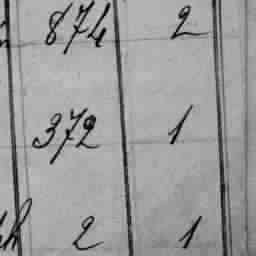 874 2
372 1
2 1